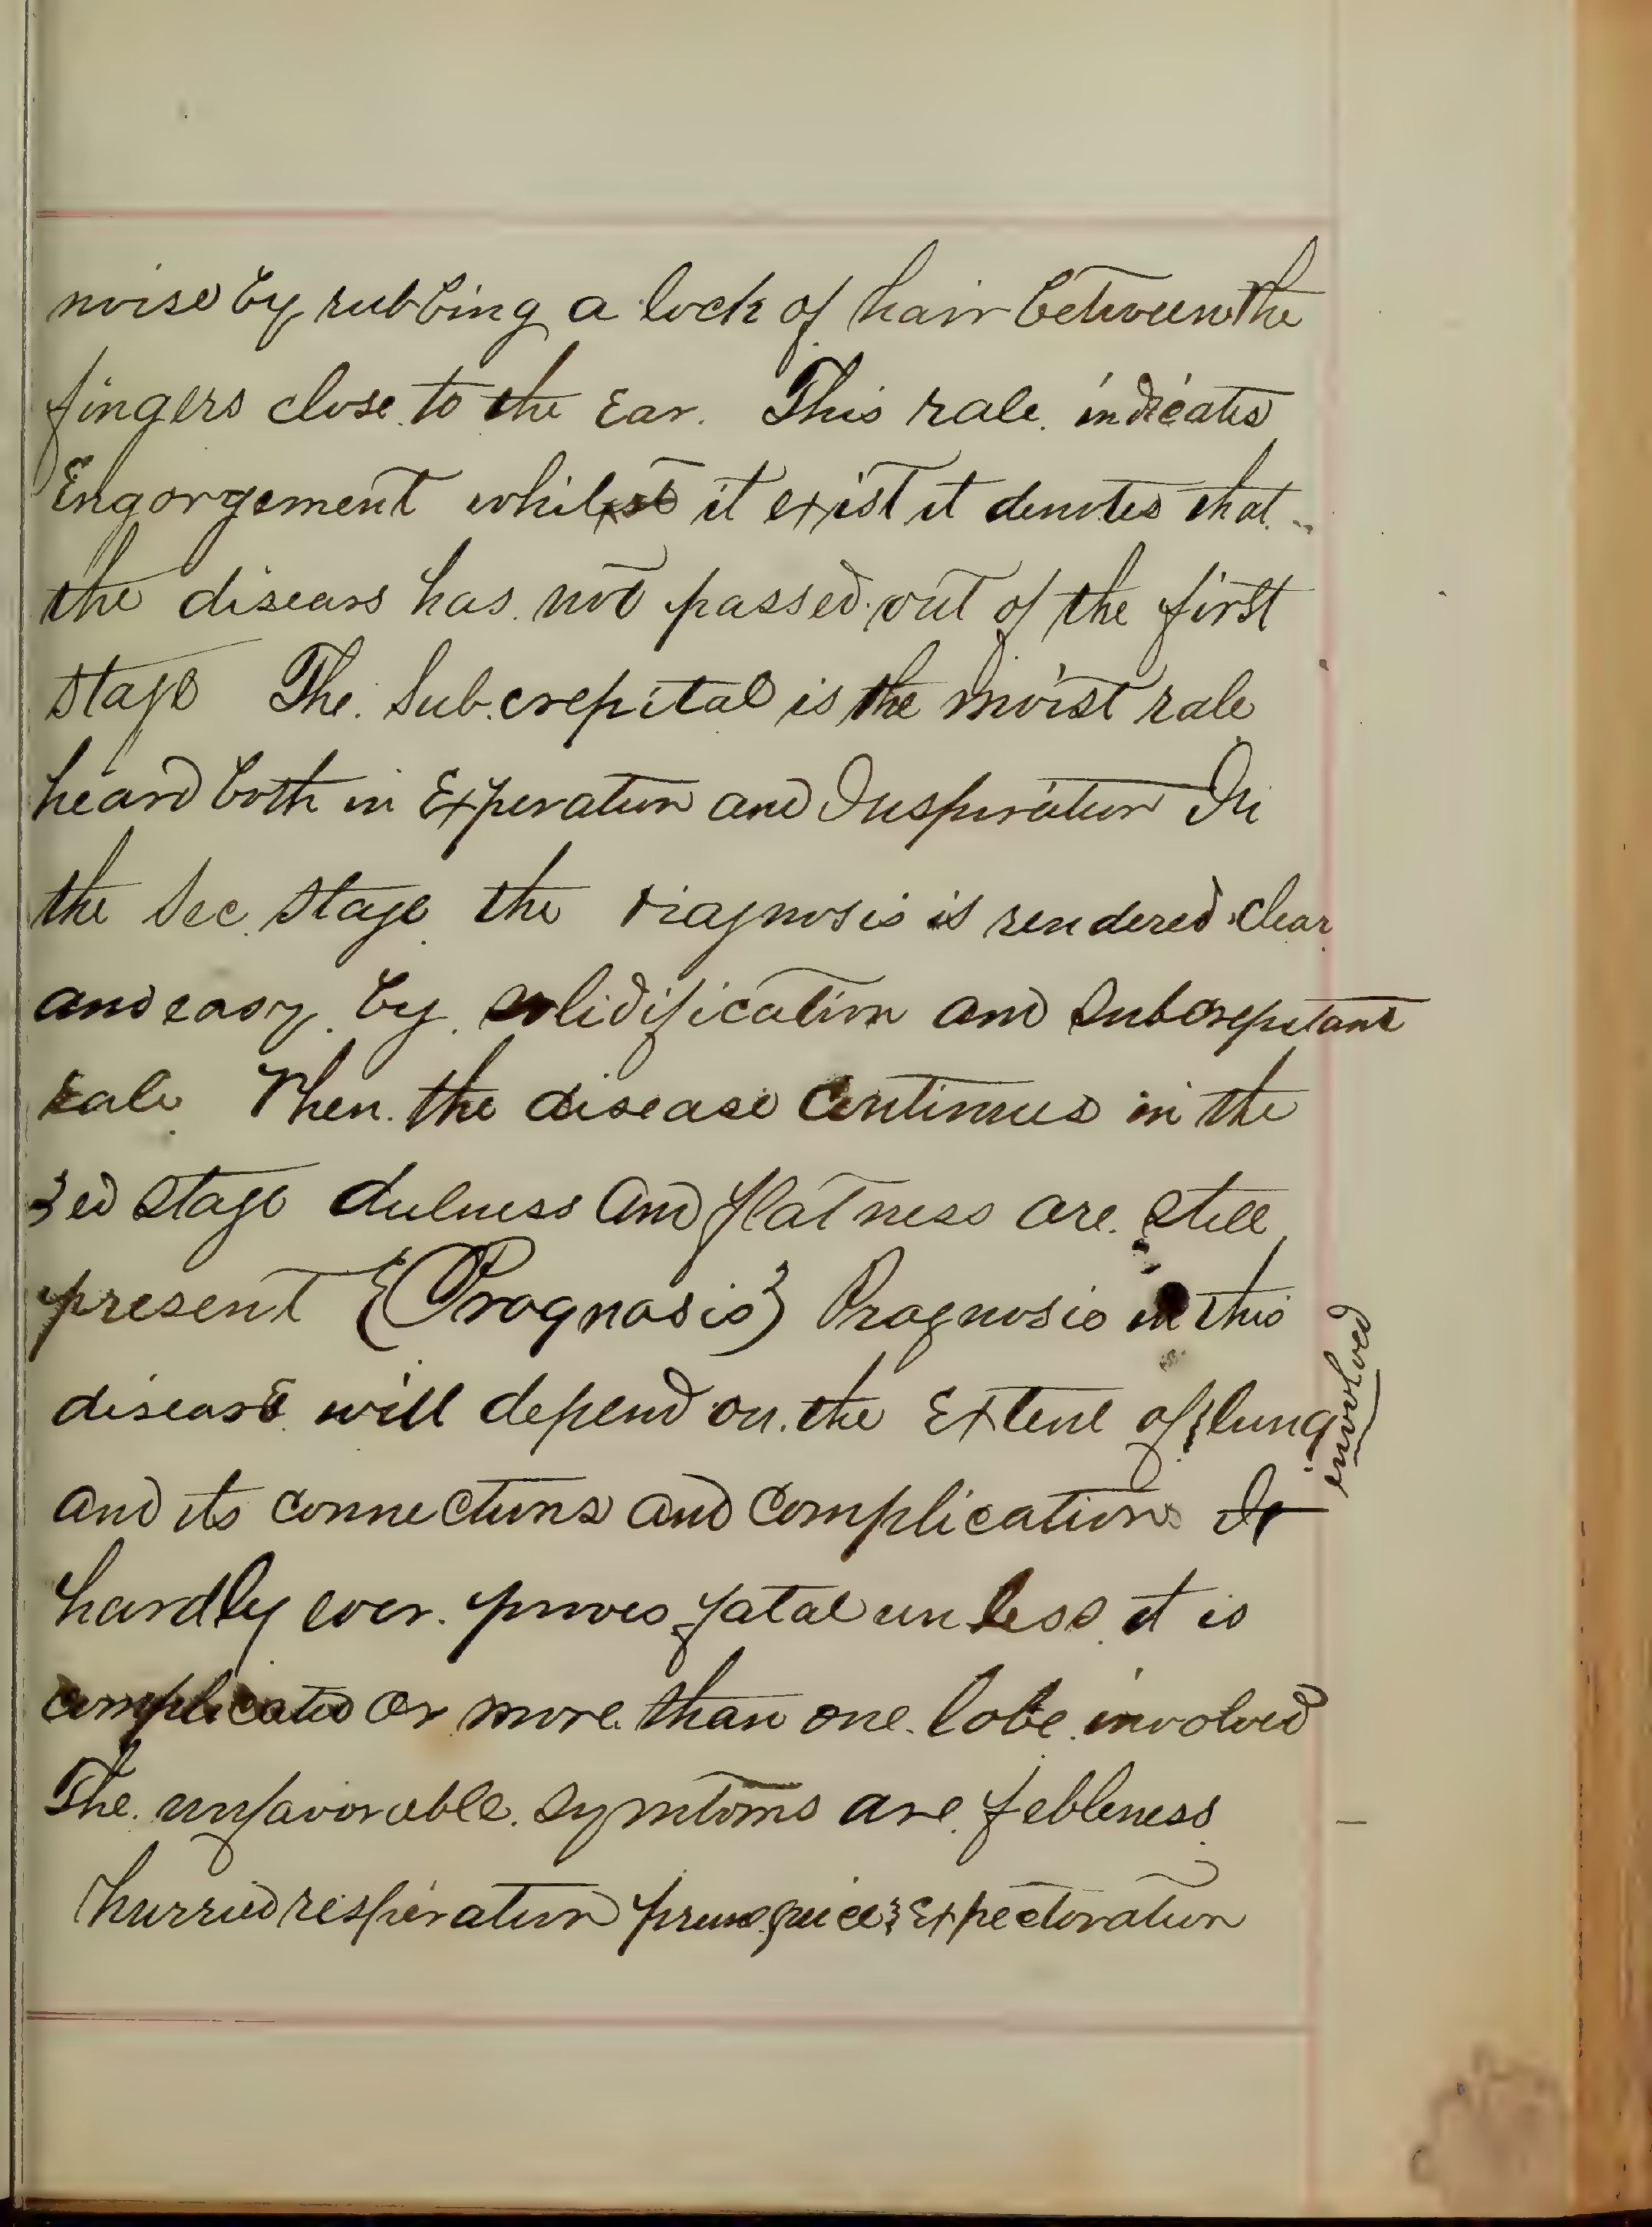 noise by rubbing a lock of hair between the
fingers close to the Ear. This rale indicates
Engorgement whilst it exist it denotes that
the diseas has not passed out of the first
stage The Sub.crepital is the moist rale
heard both in Experation and Inspiration In
the Sec. stage the diagnosis is rendered clear
and easy by solidification and Subcrepitant
rale Then the disease continues in the
3ed stage dulness and flatness are still
present {(Prognosis)} Prognosis in this
disease will depend on the Extent of lung involved
and its connections and complications It
hardly ever proves fatal unless it is
complicated or more than one lobe involved
The unfavorable symtoms are febleness
hurried respiration Expectoration